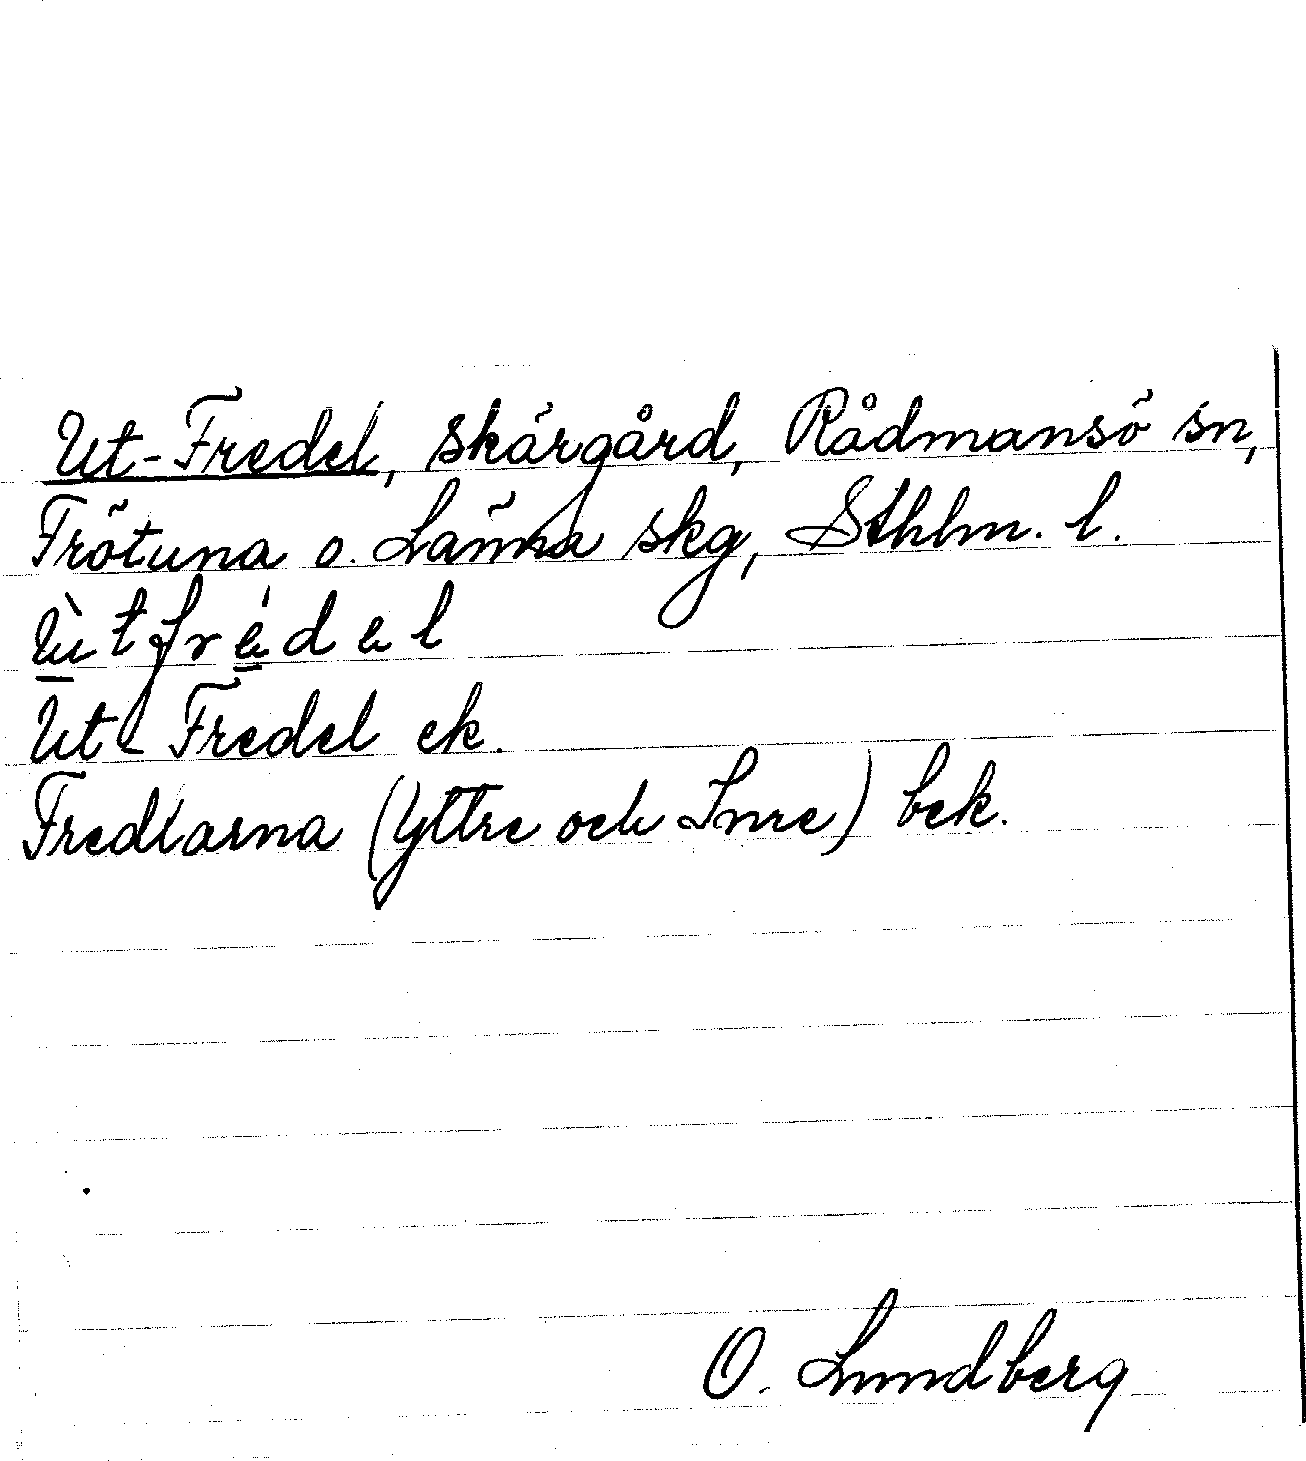 Ut-Fredel, skärgård, Rådmansö sn,
Frötuna o. Länna skg, Sthlm. l.
Ùtfrédel
Ut-Fredel ek.
Fredlarna (Yttre och Inre) bek.
O. Lundberg